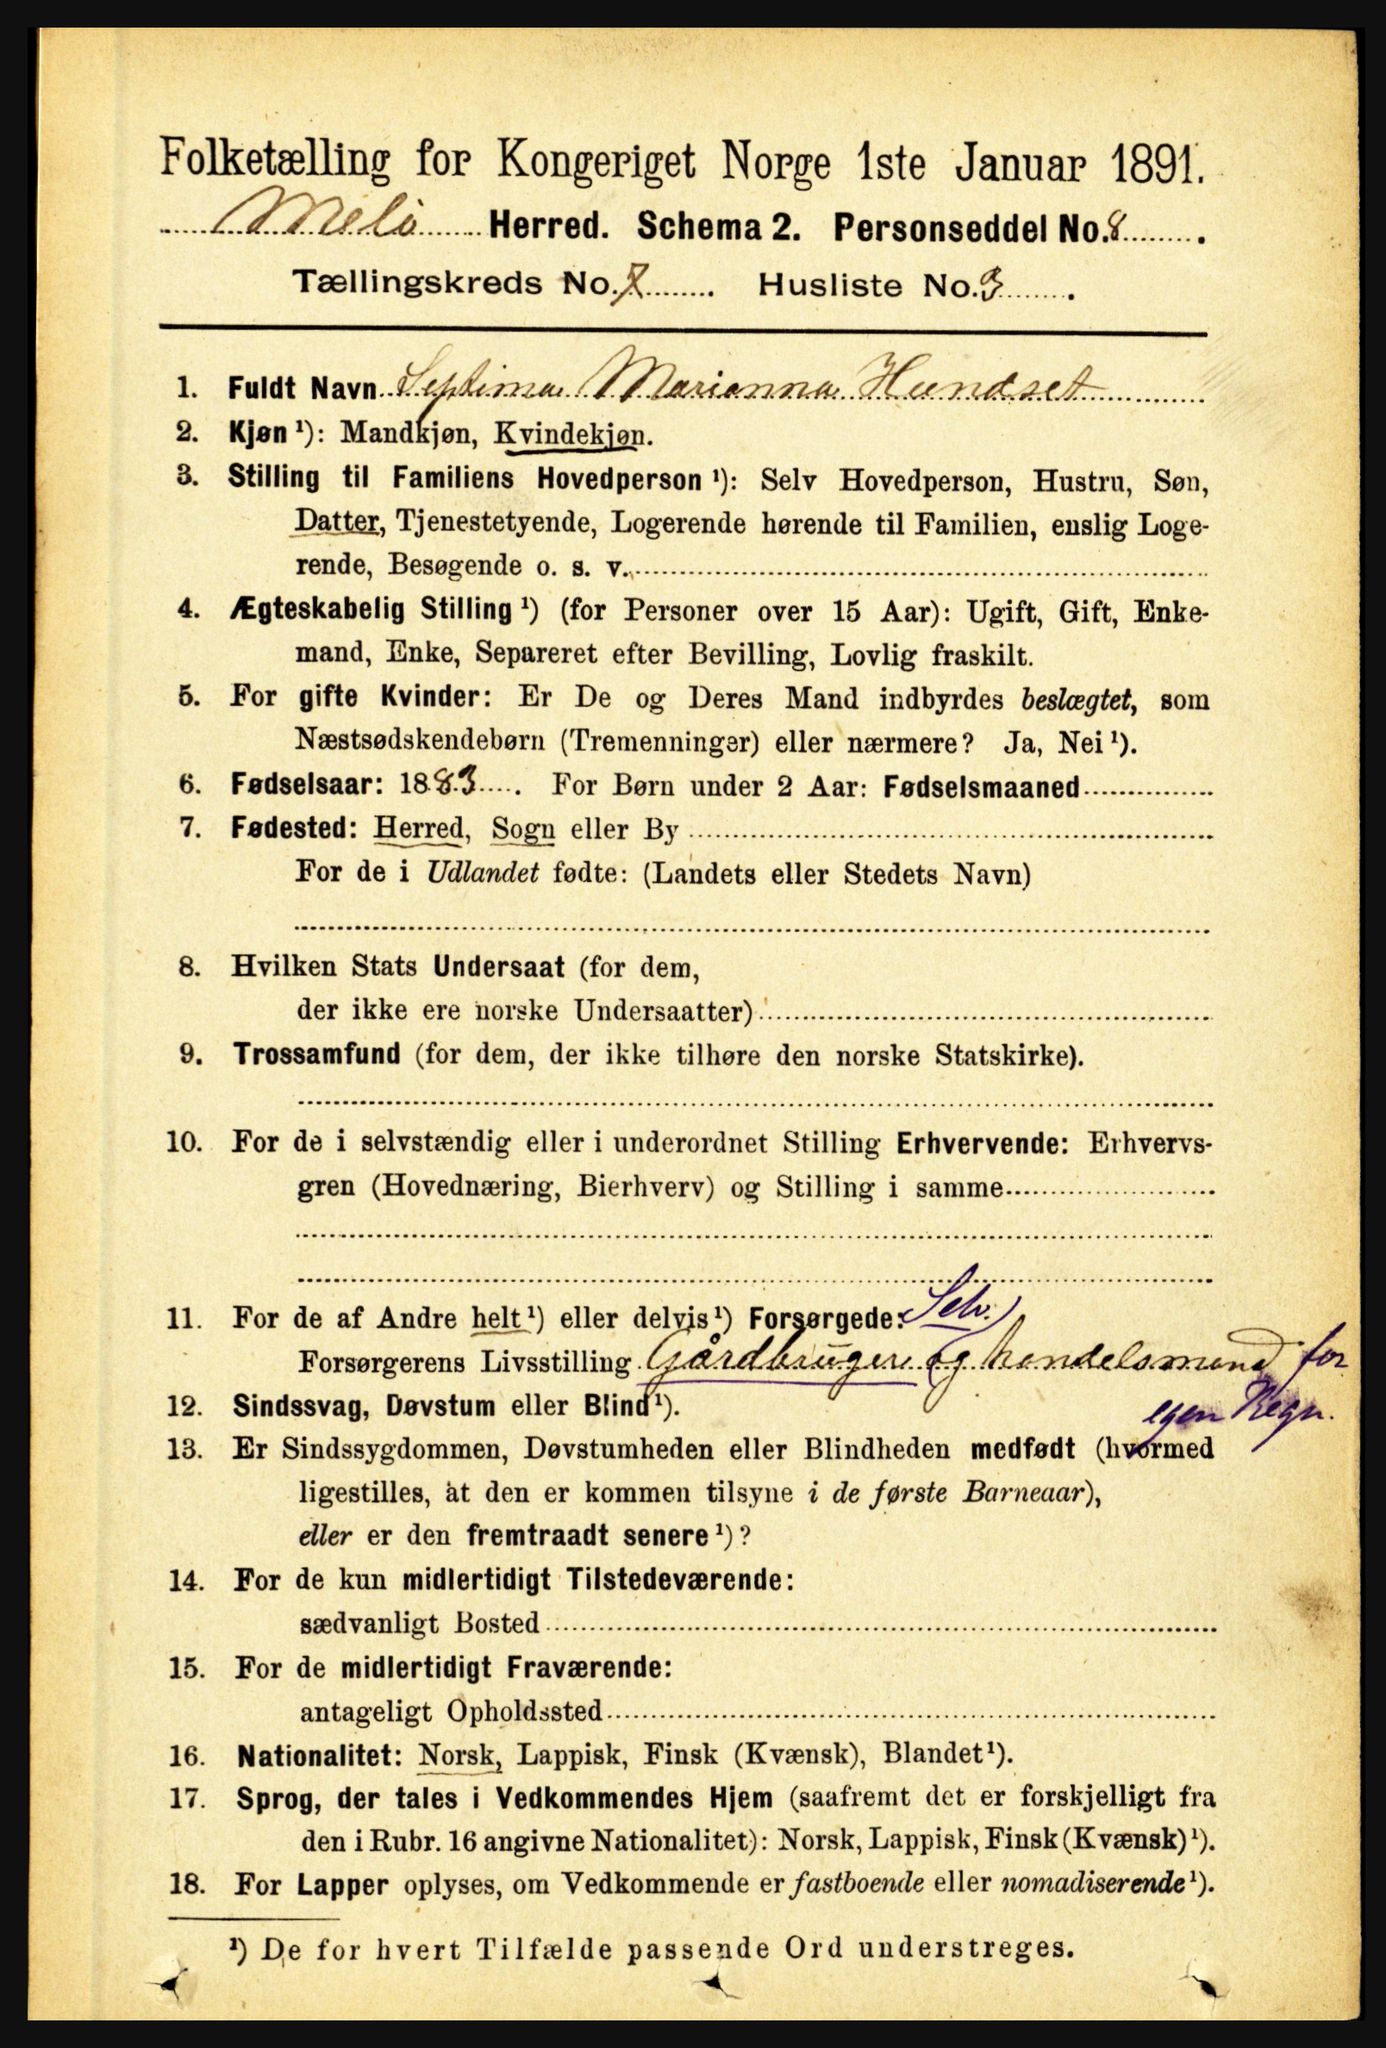 Folketælling for Kongeriget Norge 1ste Januar 1891.
Melö Herred. Schema 2. Personseddel No. 8.
Tællingskreds No. 7. Husliste No. 3.
1. Fuldt Navn Septima Marianna Hundset
2. Kjøn ¹): Mandkjøn, Kvindekjøn.
3. Stilling til Familiens Hovedperson ¹): Selv Hovedperson, Hustru, Søn,
Datter, Tjenestetyende, Logerende hørende til Familien, enslig Loge-
rende, Besøgende o. s. v.
4. Ægteskabelig Stilling ¹) (for Personer over 15 Aar): Ugift, Gift, Enke-
mand, Enke, Separeret efter Bevilling, Lovlig fraskilt.
5. For gifte Kvinder: Er De og Deres Mand indbyrdes beslægtet, som
Næstsødskendebørn (Tremenninger) eller nærmere? Ja, Nei ¹).
6. Fødselsaar: 1883. For Børn under 2 Aar: Fødselsmaaned
7. Fødested: Herred, Sogn eller By
For de i Udlandet fødte: (Landets eller Stedets Navn)
8. Hvilken Stats Undersaat (for dem,
der ikke ere norske Undersaatter)
9. Trossamfund (for dem, der ikke tilhøre den norske Statskirke).
10. For de i selvstændig eller i underordnet Stilling Erhvervende: Erhvervs-
gren (Hovednæring, Bierhverv) og Stilling i samme
11. For de af Andre helt ¹) eller delvis ¹) Forsørgede: Selv.
Forsørgerens Livsstilling Gårdbruger og handelsmand for
egen Regn.
12. Sindssvag, Døvstum eller Blind ¹).
13. Er Sindssygdommen, Døvstumheden eller Blindheden medfødt (hvormed
ligestilles, at den er kommen tilsyne i de første Barneaar),
eller er den fremtraadt senere ¹)?
14. For de kun midlertidigt Tilstedeværende:
sædvanligt Bosted
15. For de midlertidigt Fraværende:
antageligt Opholdssted
16. Nationalitet: Norsk, Lappisk, Finsk (Kvænsk), Blandet ¹).
17. Sprog, der tales i Vedkommendes Hjem (saafremt det er forskjelligt fra
den i Rubr. 16 angivne Nationalitet): Norsk, Lappisk, Finsk (Kvænsk) ¹).
18. For Lapper oplyses, om Vedkommende er fastboende eller nomadiserende ¹).
¹) De for hvert Tilfælde passende Ord understreges.